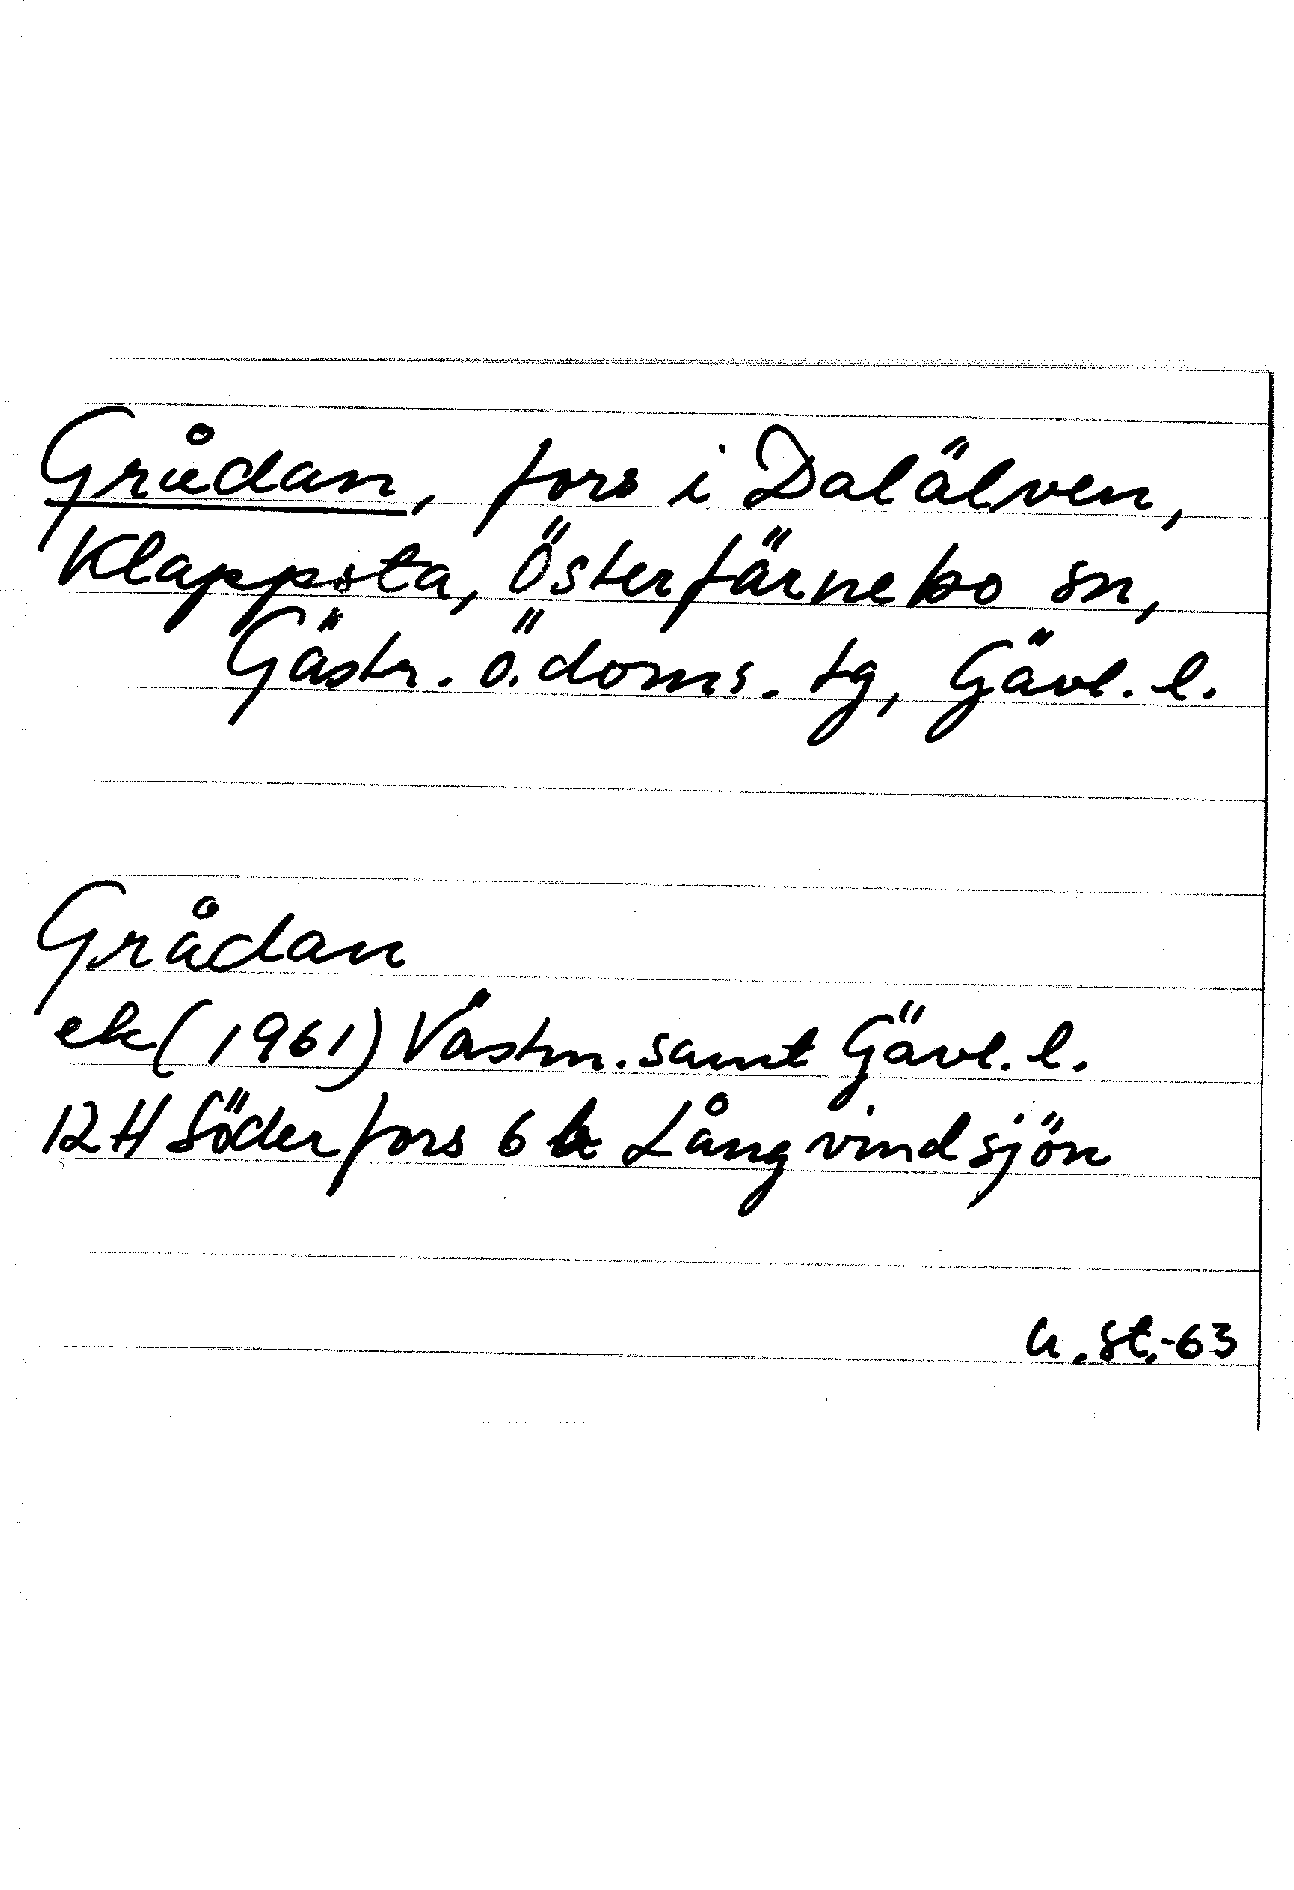 Grådan, fors i Dalälven,
Klappsta, Österfärnebo sn,
Gästr. ö. doms. tg, Gävl. l.
Grådan
ek (1961) Västm. samt Gävl. l.
12 H Söderfors 6 b Långvindsjön
u. st. -63